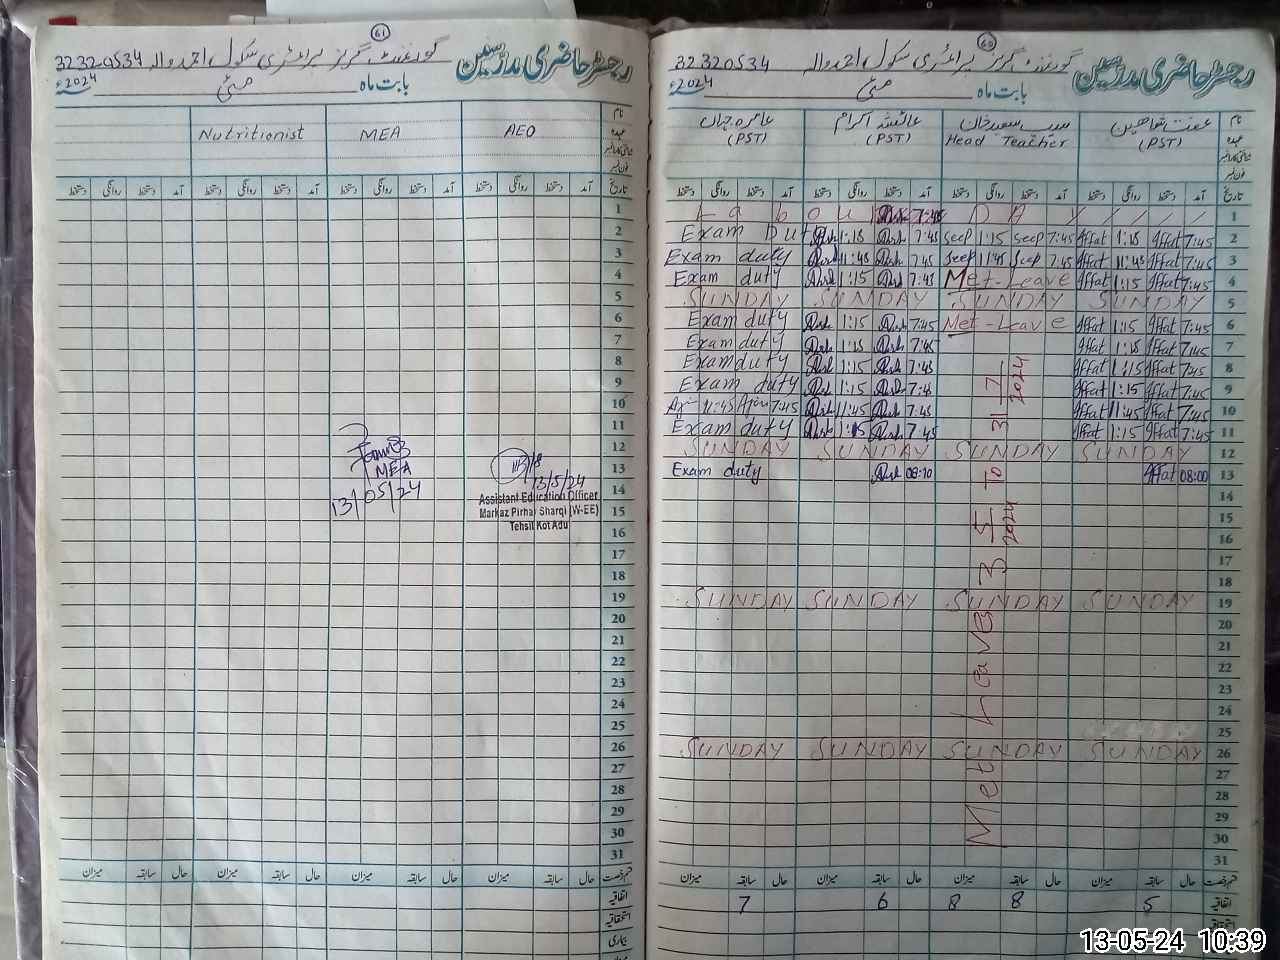 61
رجسٹر حاضری مدرسین
گورنمنٹ گرلز پرائمری سکول احمد والہ 32320534
بابت ماہ مئی 2024ء
نام
عہدہ
AEO
MEA
Nutritionist
تاریخ آمد دستخط روانگی دستخط آمد دستخط روانگی دستخط آمد دستخط روانگی دستخط آمد دستخط روانگی دستخط
1
2
3
4
5
6
7
8
9
10
11
12
13
14
15
16
17
18
19
20
21
22
23
24
25
26
27
28
29
30
31
MEA
13/05/24
13/5/24
Assistant Education Officer
Markaz Pirhar Sharqi (W-EE)
Tehsil Kot Adu
قسم رخصت حال سابقہ میزان حال سابقہ میزان حال سابقہ میزان حال سابقہ میزان
اتفاقیہ
استحقاقیہ
بیماری
60
رجسٹر حاضری مدرسین
گورنمنٹ گرلز پرائمری سکول احمد والہ 32320534
بابت ماہ مئی 2024ء
نام
عہدہ
عفت شاہین
(PST)
Head Teacher
عائشہ اکرام
(PST)
(PST)
تاریخ آمد دستخط روانگی دستخط آمد دستخط روانگی دستخط آمد دستخط روانگی دستخط آمد دستخط روانگی دستخط
Labour 7:45 DAY 1
Exam Dut 1:15 7:45 1:15 7:45 Iffat 1:15 Iffat 7:45 2
Exam duty 11:45 7:45 11:45 7:45 Iffat 11:45 Iffat 7:45 3
Exam duty 1:15 7:45 Met-Leave Iffat 1:15 Iffat 7:45 4
SUNDAY SUNDAY SUNDAY SUNDAY 5
Exam duty 1:15 7:45 Met-Leave Iffat 1:15 Iffat 7:45 6
Exam duty 1:15 7:45 Iffat 1:15 Iffat 7:45 7
Exam duty 1:15 7:45 Iffat 1:15 Iffat 7:45 8
Exam duty 1:15 7:45 Iffat 1:15 Iffat 7:45 9
11:45 7:45 11:45 7:45 Iffat 11:45 Iffat 7:45 10
Exam duty 1:15 7:45 Iffat 1:15 Iffat 7:45 11
SUNDAY SUNDAY SUNDAY SUNDAY 12
Exam duty 08:10 Iffat 08:00 13
14
15
16
17
18
SUNDAY SUNDAY SUNDAY SUNDAY 19
20
21
22
23
24
25
SUNDAY SUNDAY SUNDAY SUNDAY 26
27
28
29
30
31
Met Leaves 3 5 2024 To 31 7 2024
قسم رخصت حال سابقہ میزان حال سابقہ میزان حال سابقہ میزان حال سابقہ میزان
اتفاقیہ 5 8 8 6 7
13-05-24 10:39